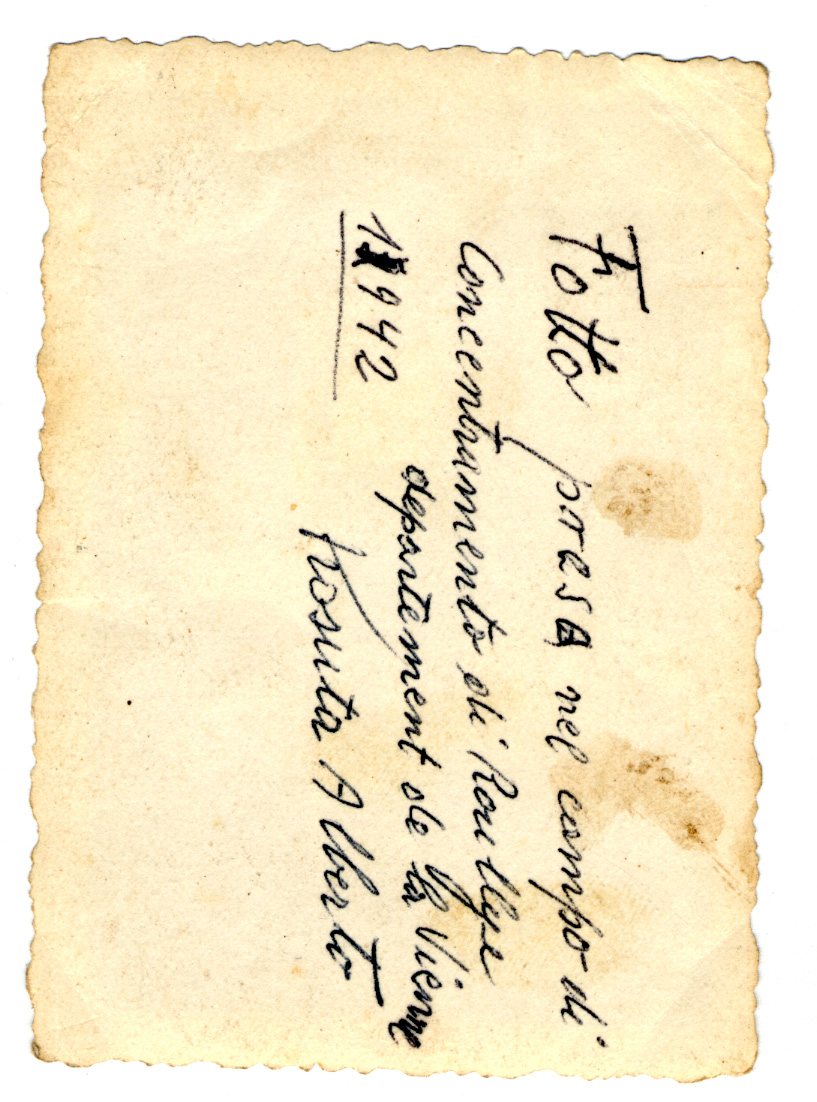 Fotto presa nel campo di
Concentramento di Roullye
1942 departement de la Vienne
Kosuta Alberto